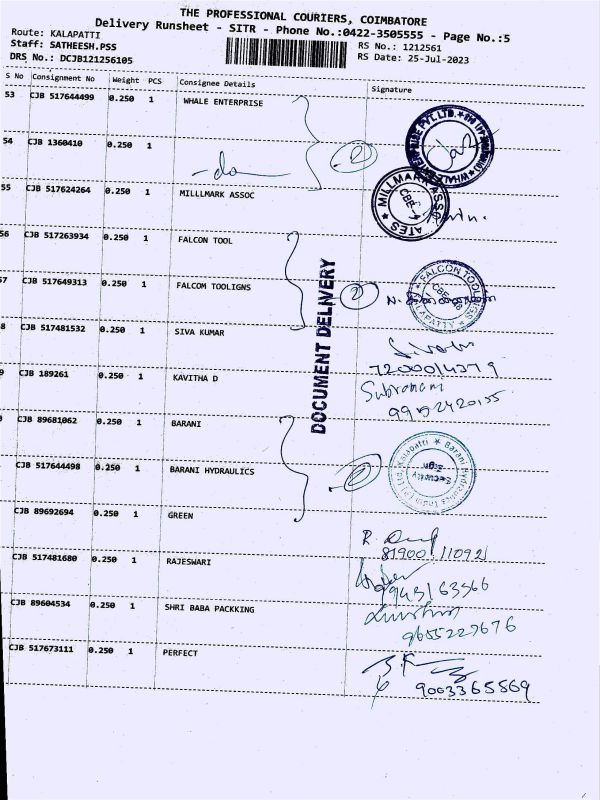 THE PROFESSIONAL COURIERS, COIMBATORE
Delivery Runsheet - SITR - Phone No.:0422-3505555 - Page No.:5
Route: KALAPATTI
RS No.: 1212561
Staff: SATHEESH.PSS
RS Date: 25-Jul-2023
DRS No.: DCJB121256105
S No Consignment No Weight PCS Consignee Details Signature
53 CJB 517644499 0.250 1 WHALE ENTERPRISE
54 CJB 1360410 0.250 1 -do-
55 CJB 517624264 0.250 1 MILLLMARK ASSOC
MILLMARK ASSO ATES CBE
56 CJB 517263934 0.250 1 FALCON TOOL
57 CJB 517649313 0.250 1 FALCOM TOOLIGNS
FALCON TOOL
8 CJB 517481532 0.250 1 SIVA KUMAR
9 CJB 189261 0.250 1 KAVITHA D
CJB 89681062 0.250 1 BARANI
CJB 517644498 0.250 1 BARANI HYDRAULICS
Barani Hydraulics India (P) Ltd, Kalapatti
Security Sign
CJB 89692694 0.250 1 GREEN
81900 11092
CJB 517481680 0.250 1 RAJESWARI
CJB 89604534 0.250 1 SHRI BABA PACKKING
9655227676
CJB 517673111 0.250 1 PERFECT
9003365869
DOCUMENT DELIVERY